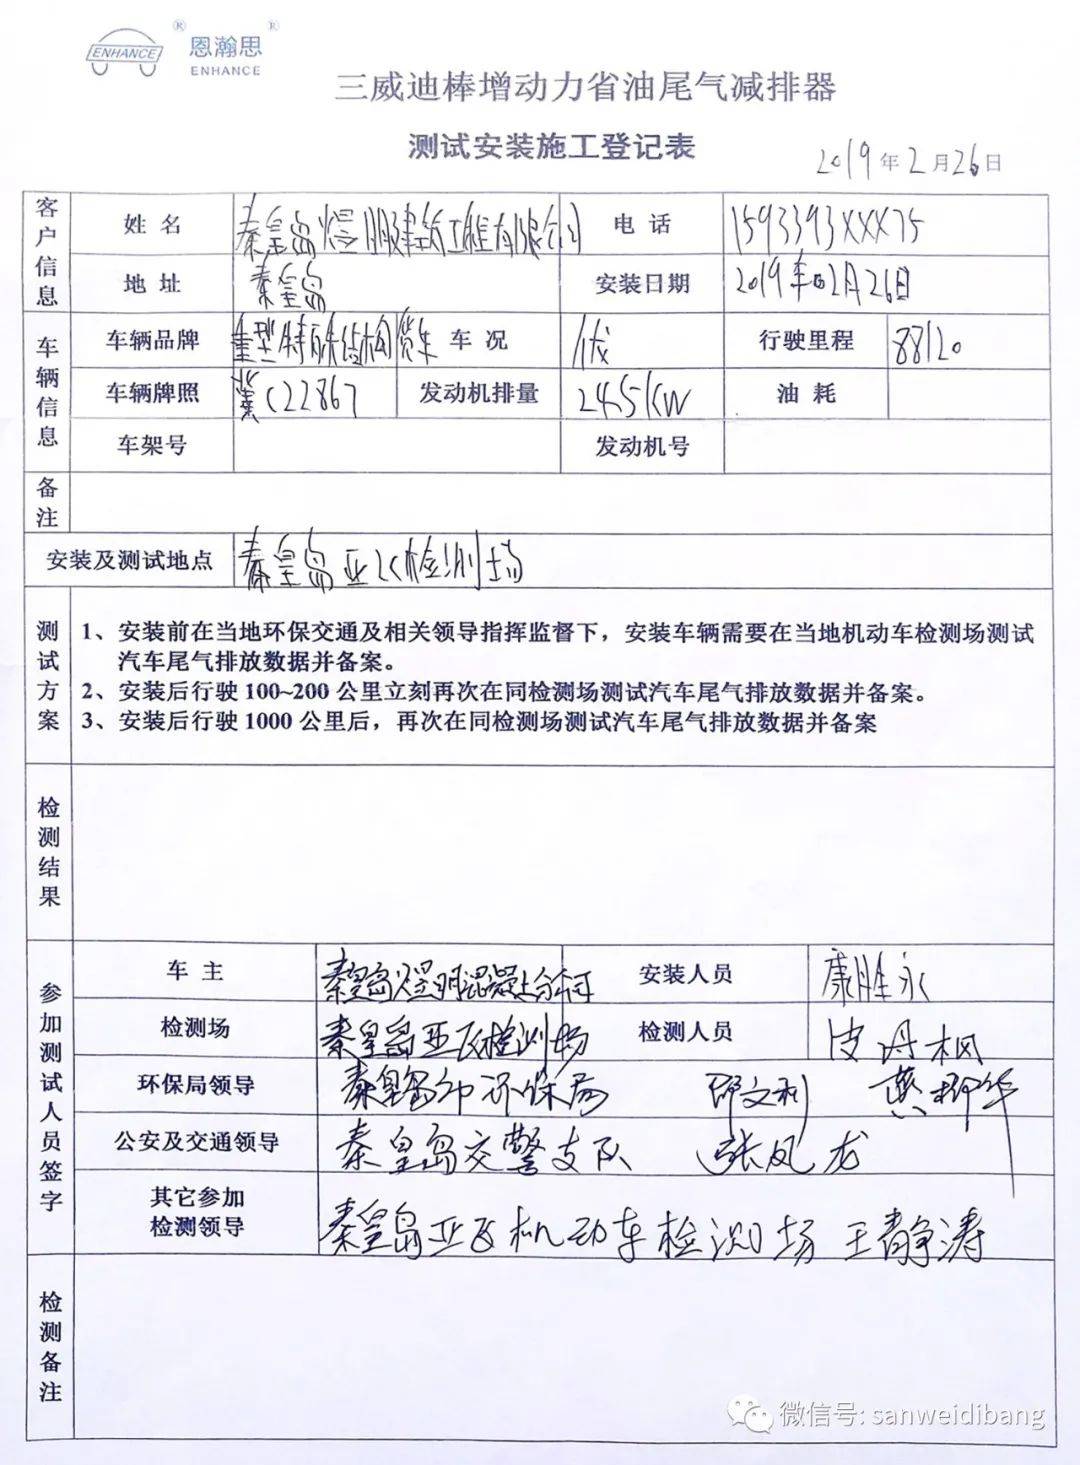 ENHANCE ® 恩瀚思 ®
ENHANCE
三威迪棒增动力省油尾气减排器
测试安装施工登记表
2019年2月26日
客户信息
姓名 秦皇岛煜明建筑工程有限公司 电话 1593393XXX75
地址 秦皇岛 安装日期 2019年02月26日
车辆信息
车辆品牌 重型特殊结构货车 车况 优 行驶里程 88120
车辆牌照 冀C22867 发动机排量 245KW 油耗
车架号 发动机号
备注
安装及测试地点 秦皇岛亚飞检测场
测试方案
1、安装前在当地环保交通及相关领导指挥监督下，安装车辆需要在当地机动车检测场测试
汽车尾气排放数据并备案。
2、安装后行驶100~200公里立刻再次在同检测场测试汽车尾气排放数据并备案。
3、安装后行驶1000公里后，再次在同检测场测试汽车尾气排放数据并备案
检测结果
参加测试人员签字
车主 秦皇岛煜明混凝土公司 安装人员 康胜永
检测场 秦皇岛亚飞检测场 检测人员 皮丹枫
环保局领导 秦皇岛市环保局 邵文利
公安及交通领导 秦皇岛交警支队 张凤龙
其它参加
检测领导 秦皇岛亚飞机动车检测场 王静涛
检测备注
微信号: sanweidibang